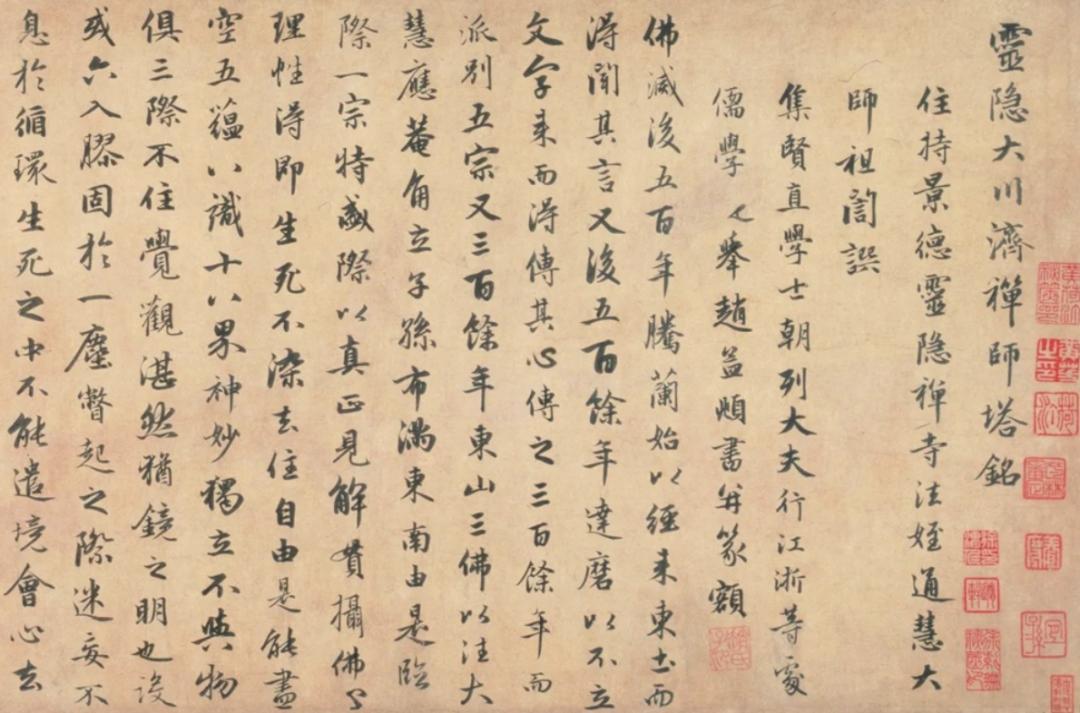 靈隐大川濟禪師塔銘
住持景德靈隐禅寺法姪通慧大
師祖誾譔
集賢直學士朝列大夫行江浙等處
儒學舉趙孟頫書并篆額
佛滅後五百年騰蘭始以經来東土而
得聞其言又後五百餘年達磨以不立
文字来而得傳其心傳之三百餘年而
派别五宗又三百餘年東山三佛以法大
慧應菴角立子孫布满東南由是臨
際一宗特盛際以真正見解貫攝佛
理性得即生死不染去住自由是能盡
空五蕴八識十八界神妙獨立不與物
俱三際不住覺觀湛然猶鏡之明也設
或六入膠固於一塵瞥起之際迷妄不
息於循環生死之中不能遣境會心去